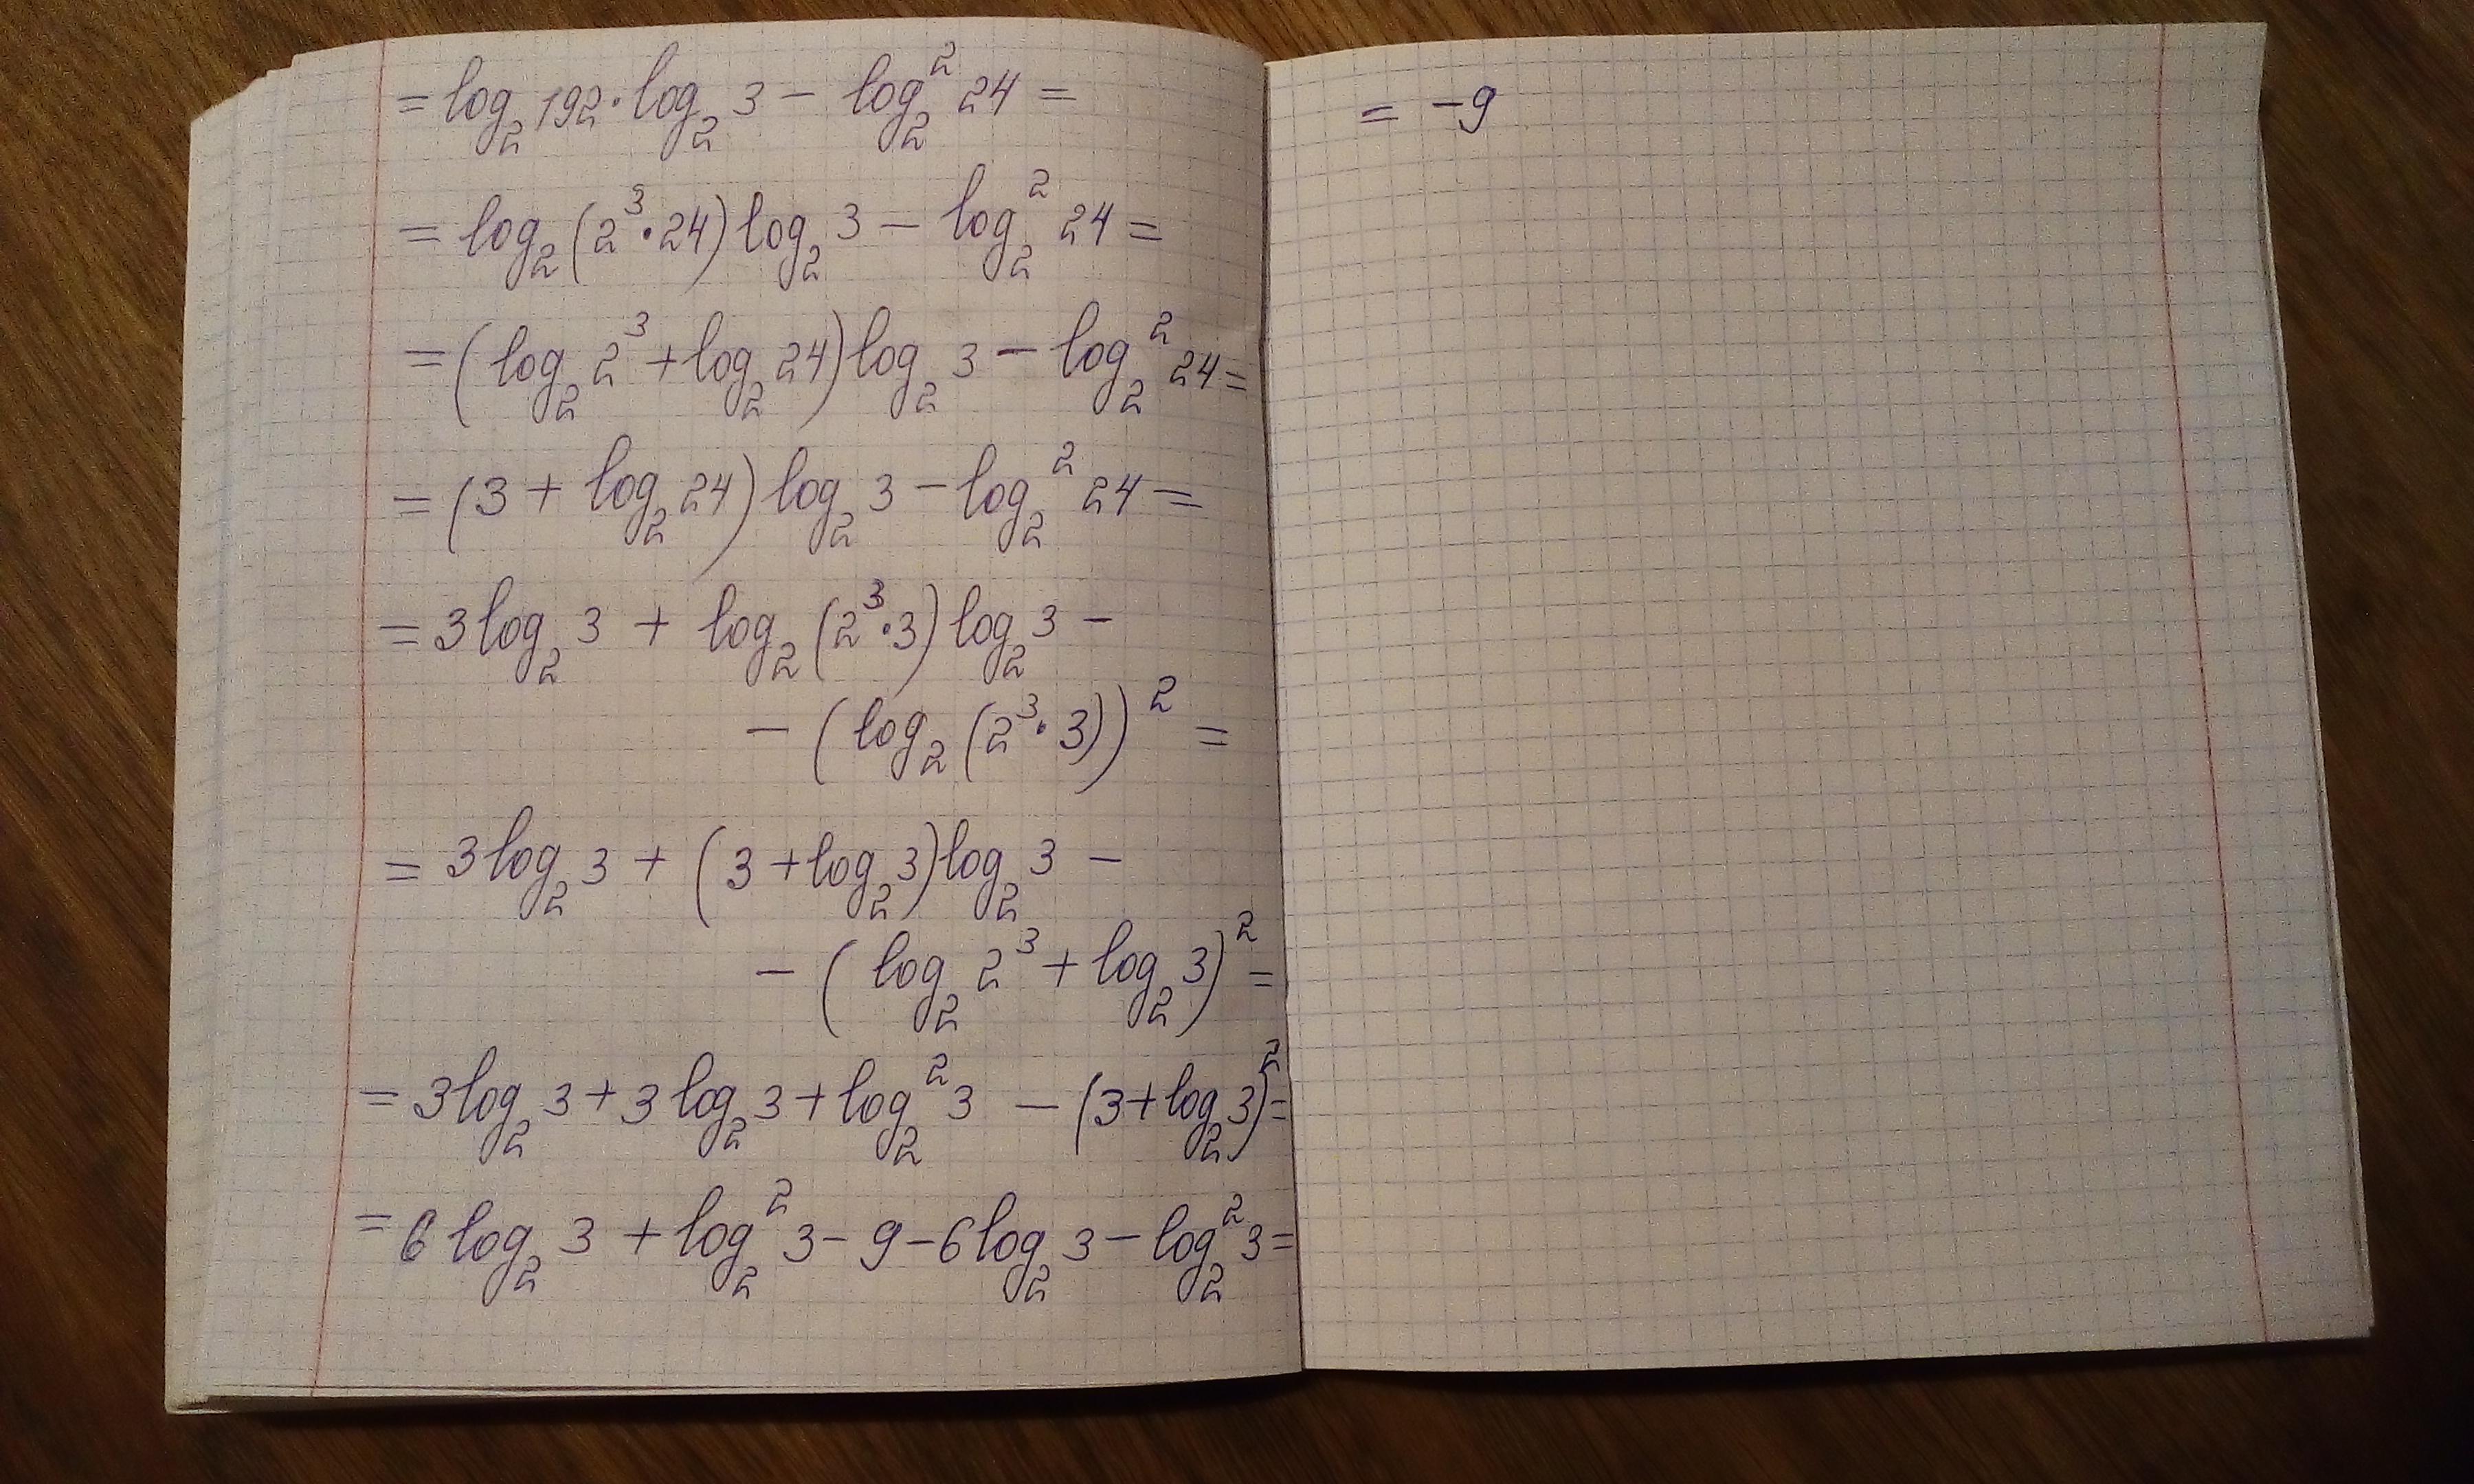 = log₂ 192 · log₂ 3 − log₂² 24 =
= log₂ (2³ · 24) log₂ 3 − log₂² 24 =
= (log₂ 2³ + log₂ 24) log₂ 3 − log₂² 24 =
= (3 + log₂ 24) log₂ 3 − log₂² 24 =
= 3 log₂ 3 + log₂ (2³ · 3) log₂ 3 −
− (log₂ (2³ · 3))² =
= 3 log₂ 3 + (3 + log₂ 3) log₂ 3 −
− (log₂ 2³ + log₂ 3)² =
= 3 log₂ 3 + 3 log₂ 3 + log₂² 3 − (3 + log₂ 3)² =
= 6 log₂ 3 + log₂² 3 − 9 − 6 log₂ 3 − log₂² 3 =
= −9